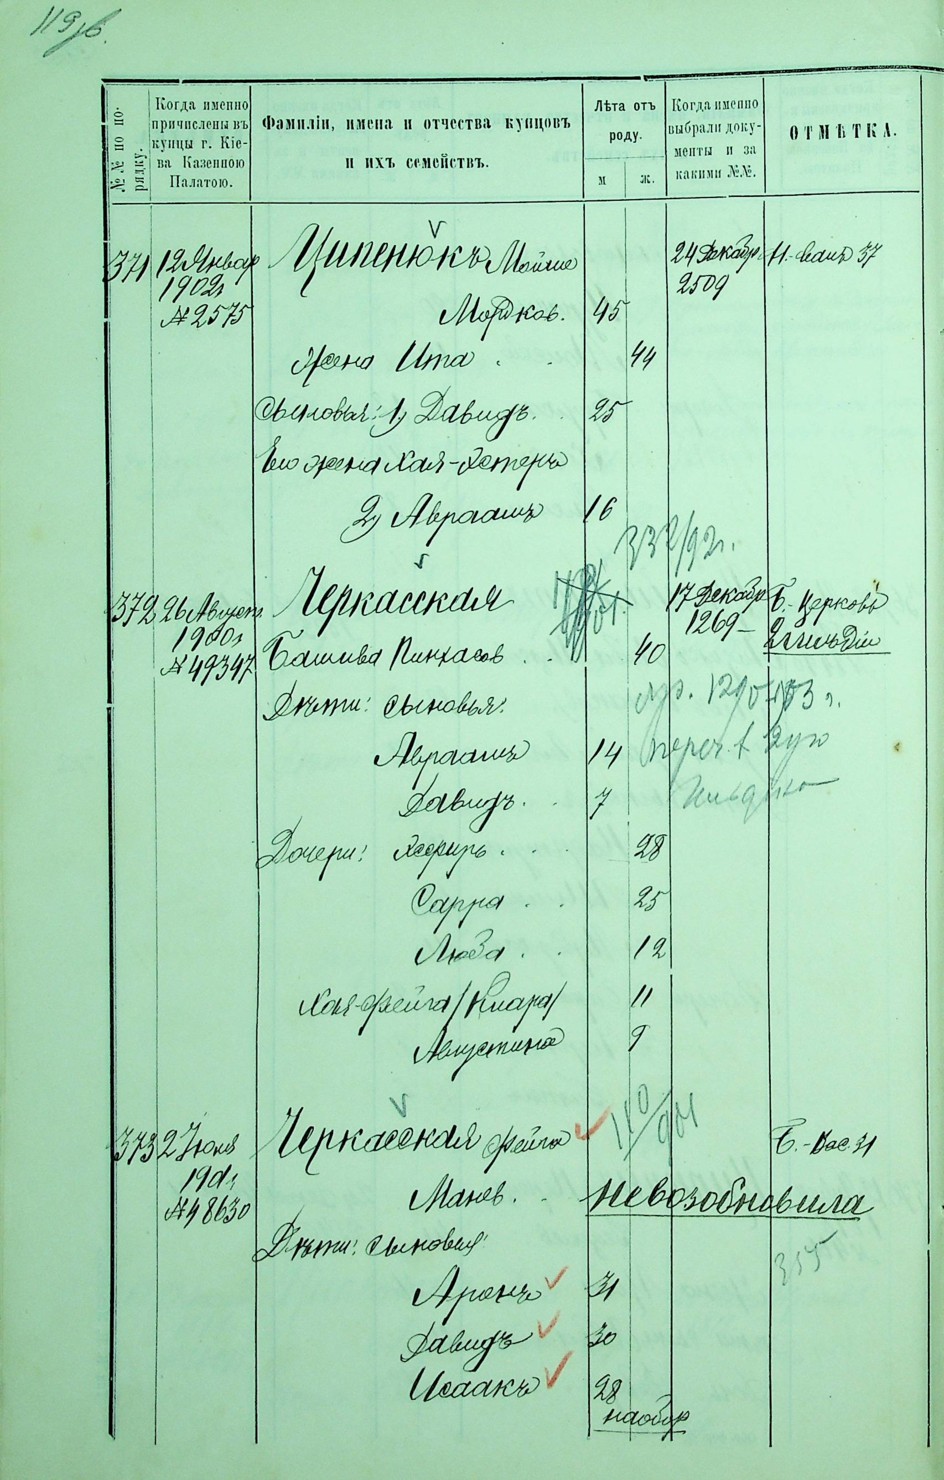 119 об.
№№ по по-
рядку.
Когда именно
причислены въ
купцы г. Кіе-
ва Казенною
Палатою.
Фамиліи, имена и отчества купцовъ
и ихъ семействъ.
Лѣта отъ
роду.
м
ж.
Когда именно
выбрали доку-
менты и за
какими №№.
ОТМѢТКА.
371 12 Январ Ципенюкъ Мойше 24 Декабр 37
1902 г. 2509
№ 2575 Мордков. 45
Жена Ита 44
Сыновья: 1) Давидъ. 25
Его жена Хая-Эстеръ
2) Авраамъ 16
332/92 г.
372 26 Август. Черкасская 17 Декабр Б.-Церковь
1900 г. 1269 2 гильдіи
№ 49347 Башива Пинхасов 40
Дѣти: сыновья: 1290
Авраамъ 14 переч. в 2ую
Давидъ 7 гильдію
Дочери: Эсфирь 28
Сарра 25
Люба 12
Хая-Фейга /Клара/ 11
Августина 9
373 2 Іюля Черкасская Фейга 110/904 Б.-Вас. 31
190 г.
№ 48630 Манев. невозобновила
Дѣти: сыновья 315
Аронъ 31
Давидъ 30
Исаакъ 28
наобор